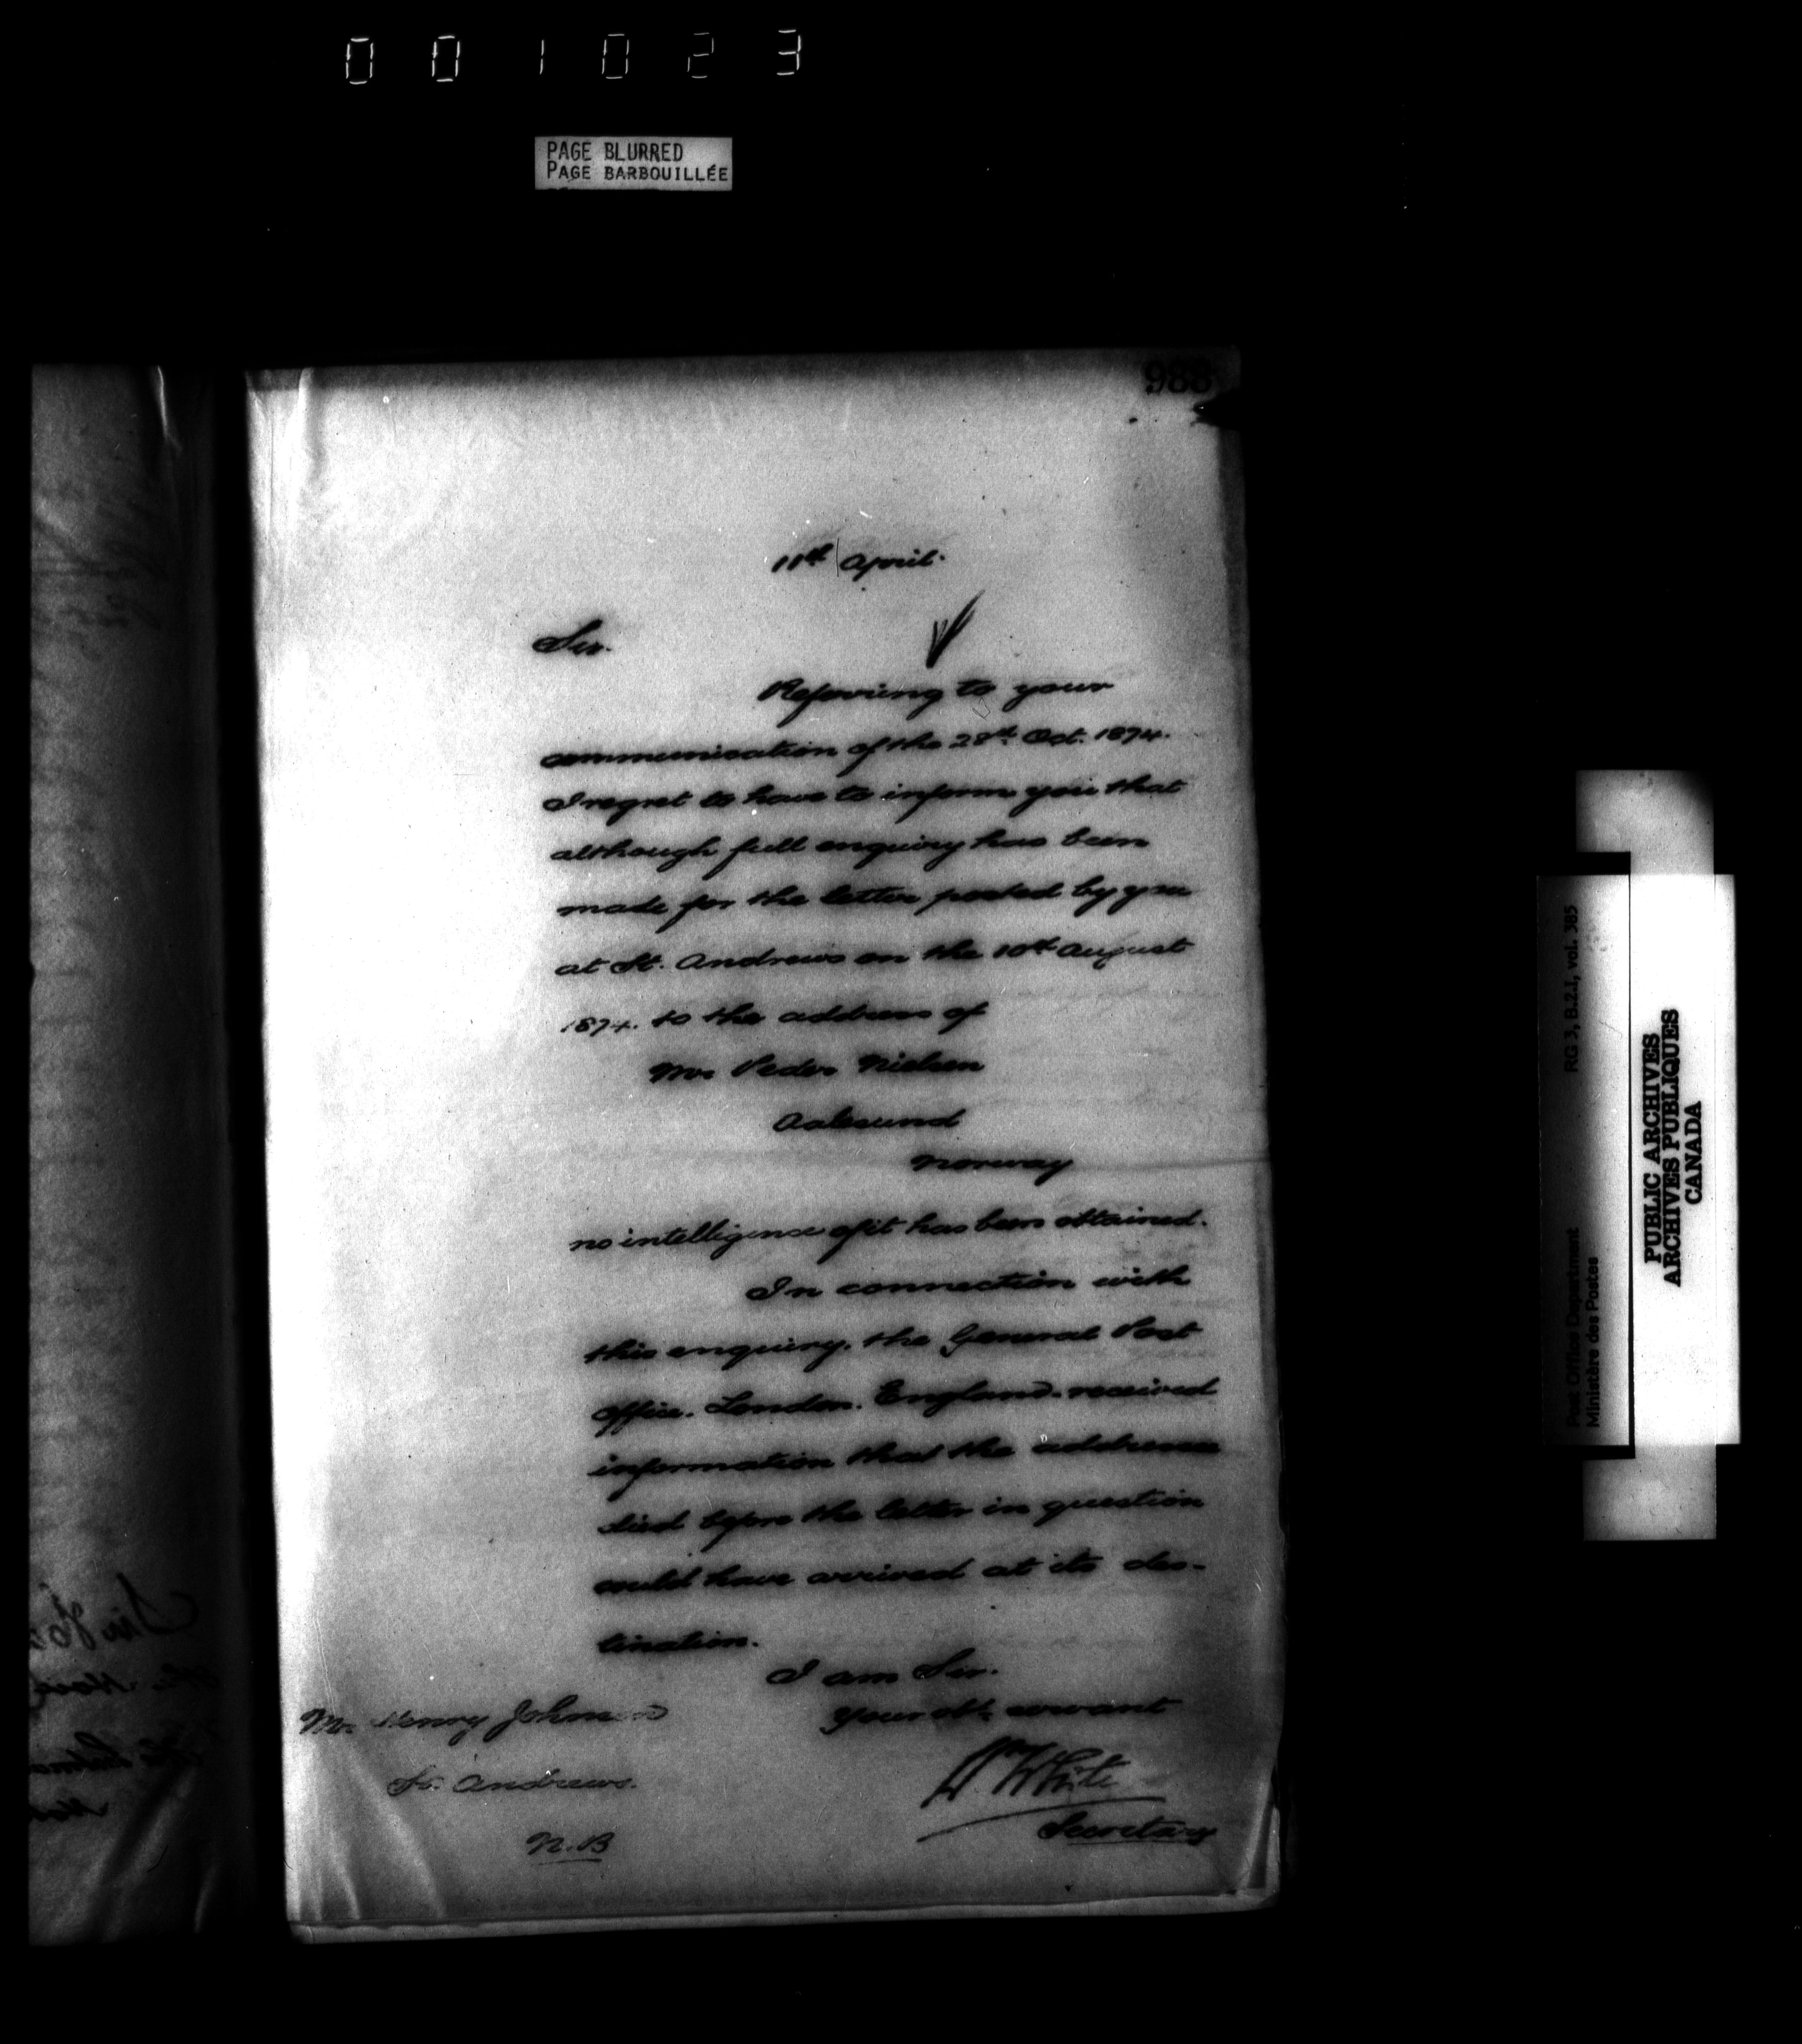 001023
PAGE BLURRED
PAGE BARBOUILLÉE
988
11th April.
Sir.
Referring to your
communication of the 28th Oct. 1874.
I regret to have to inform you that
although full enquiry has been
made for the letter posted by you
at St. Andrews on the 10th August
1874. to the address of
Mr Peder Nielsen
Aalesund
Norway
no intelligence of it has been obtained.
In connection with
this enquiry, the General Post
Office. London. England. received
information that the addressee
died before the letter in question
could have arrived at its des-
tination.
I am Sir.
Your obt. servant
Wm White
Secretary
Mr. Henry Johnson
St. Andrews.
N.B
Post Office Department
Ministère des Postes
RG 3, B.2.I, vol. 385
PUBLIC ARCHIVES
ARCHIVES PUBLIQUES
CANADA